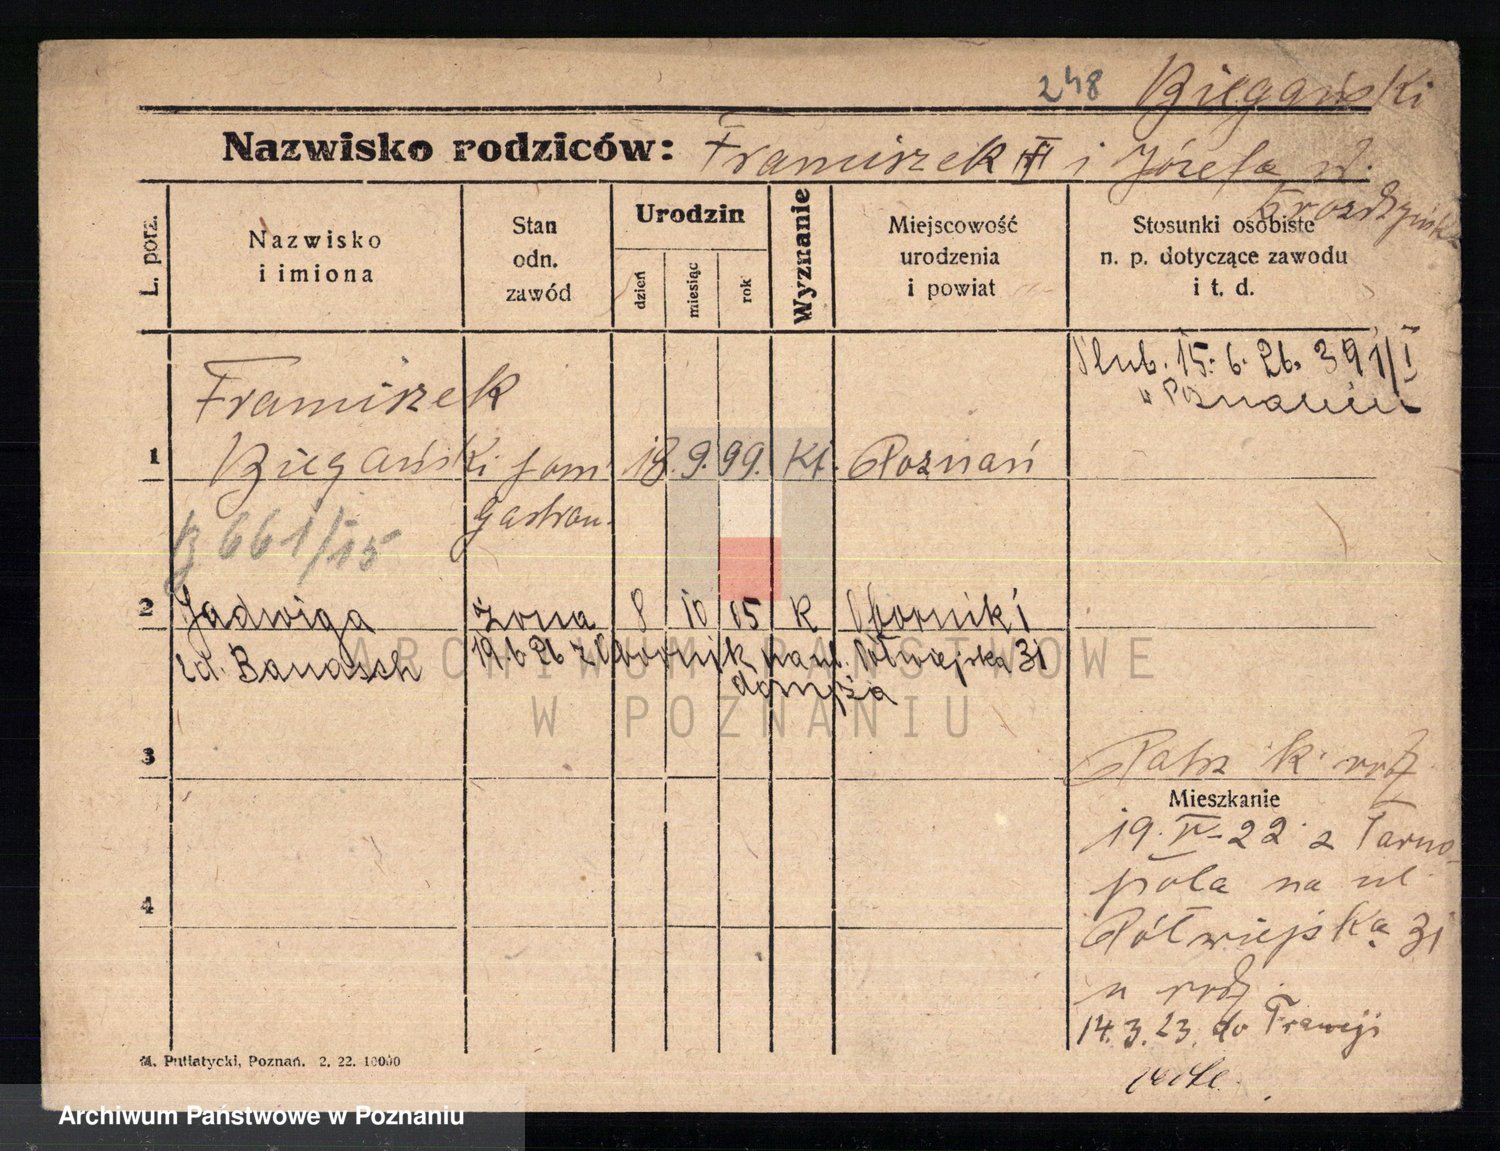 248 Biegański
Nazwisko rodziców: Franciszek i Józefa
L. porz.
Nazwisko
i imiona
Stan
odn.
zawód
Urodzin
dzień
miesiąc
rok
Wyznanie
Miejscowość
urodzenia
i powiat
Stosunki osobiste
n. p. dotyczące zawodu
i t. d.
Ślub. 15. 6. 26. 391/I
w Poznaniu
Franciszek
1 Biegański pom 18. 9. 99. Kt. Poznań
gastron.
B 661/15
2 Jadwiga żona 8 10 05 K Oborniki
zd. Banasch 19.6 26 z Obornik na ul. Półwiejska 31
do męża
3
Patrz k. rodz.
Mieszkanie
19. IV-22 z Tarno-
pola na ul.
4
Półwiejska 31
u rodz.
14. 3. 23. do Francji
M. Putiatycki, Poznań. 2. 22. 10000
ARCHIWUM PAŃSTWOWE
W POZNANIU
Archiwum Państwowe w Poznaniu